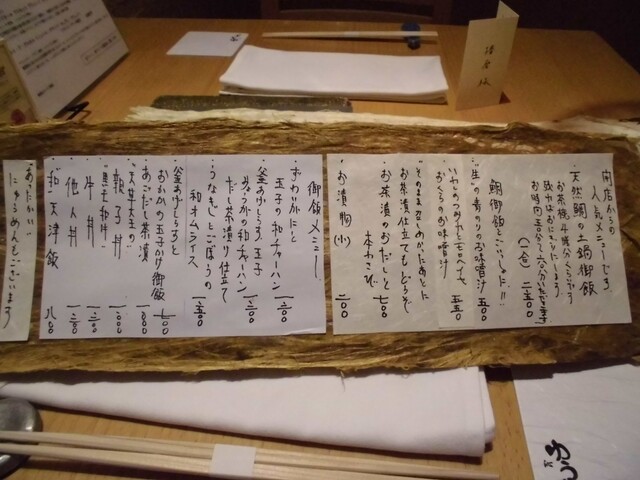 開店からの
人気メニューです
天然鯛の土鍋御飯
お茶碗4膳分くらいです
残りはおにぎりにします
お時間五十分〜六十分いただきます
(一合) 二、五〇〇
鯛御飯とごいっしょに!!
"生"青のりのお味噌汁 五〇〇
いわしのつみれとモロヘイヤ
おくらのお味噌汁 五五〇
そのままお召しあがったあとに
お茶漬仕立てもどうぞ
お茶漬のおだしと
本わさび 七〇〇
・お漬物(小) 二〇〇
御飯メニュー
・ずわいがにと
玉子の和チャーハン 一、二〇〇
・釜あげしらす、玉子
の和チャーハン
だし茶漬け仕立て 一、二〇〇
・うなぎとごぼうの
和オムライス 一、五〇〇
・釜あげしらすと
おかかの玉子かけ御飯 七〇〇
・あごだし茶漬 八〇〇
・"天草大王"の
親子丼 一、〇〇〇
・"黒毛和牛"
牛丼 一、二〇〇
・他人丼 一、二〇〇
・"和"天津飯 八八〇
・あったかい
にゅうめんもございます